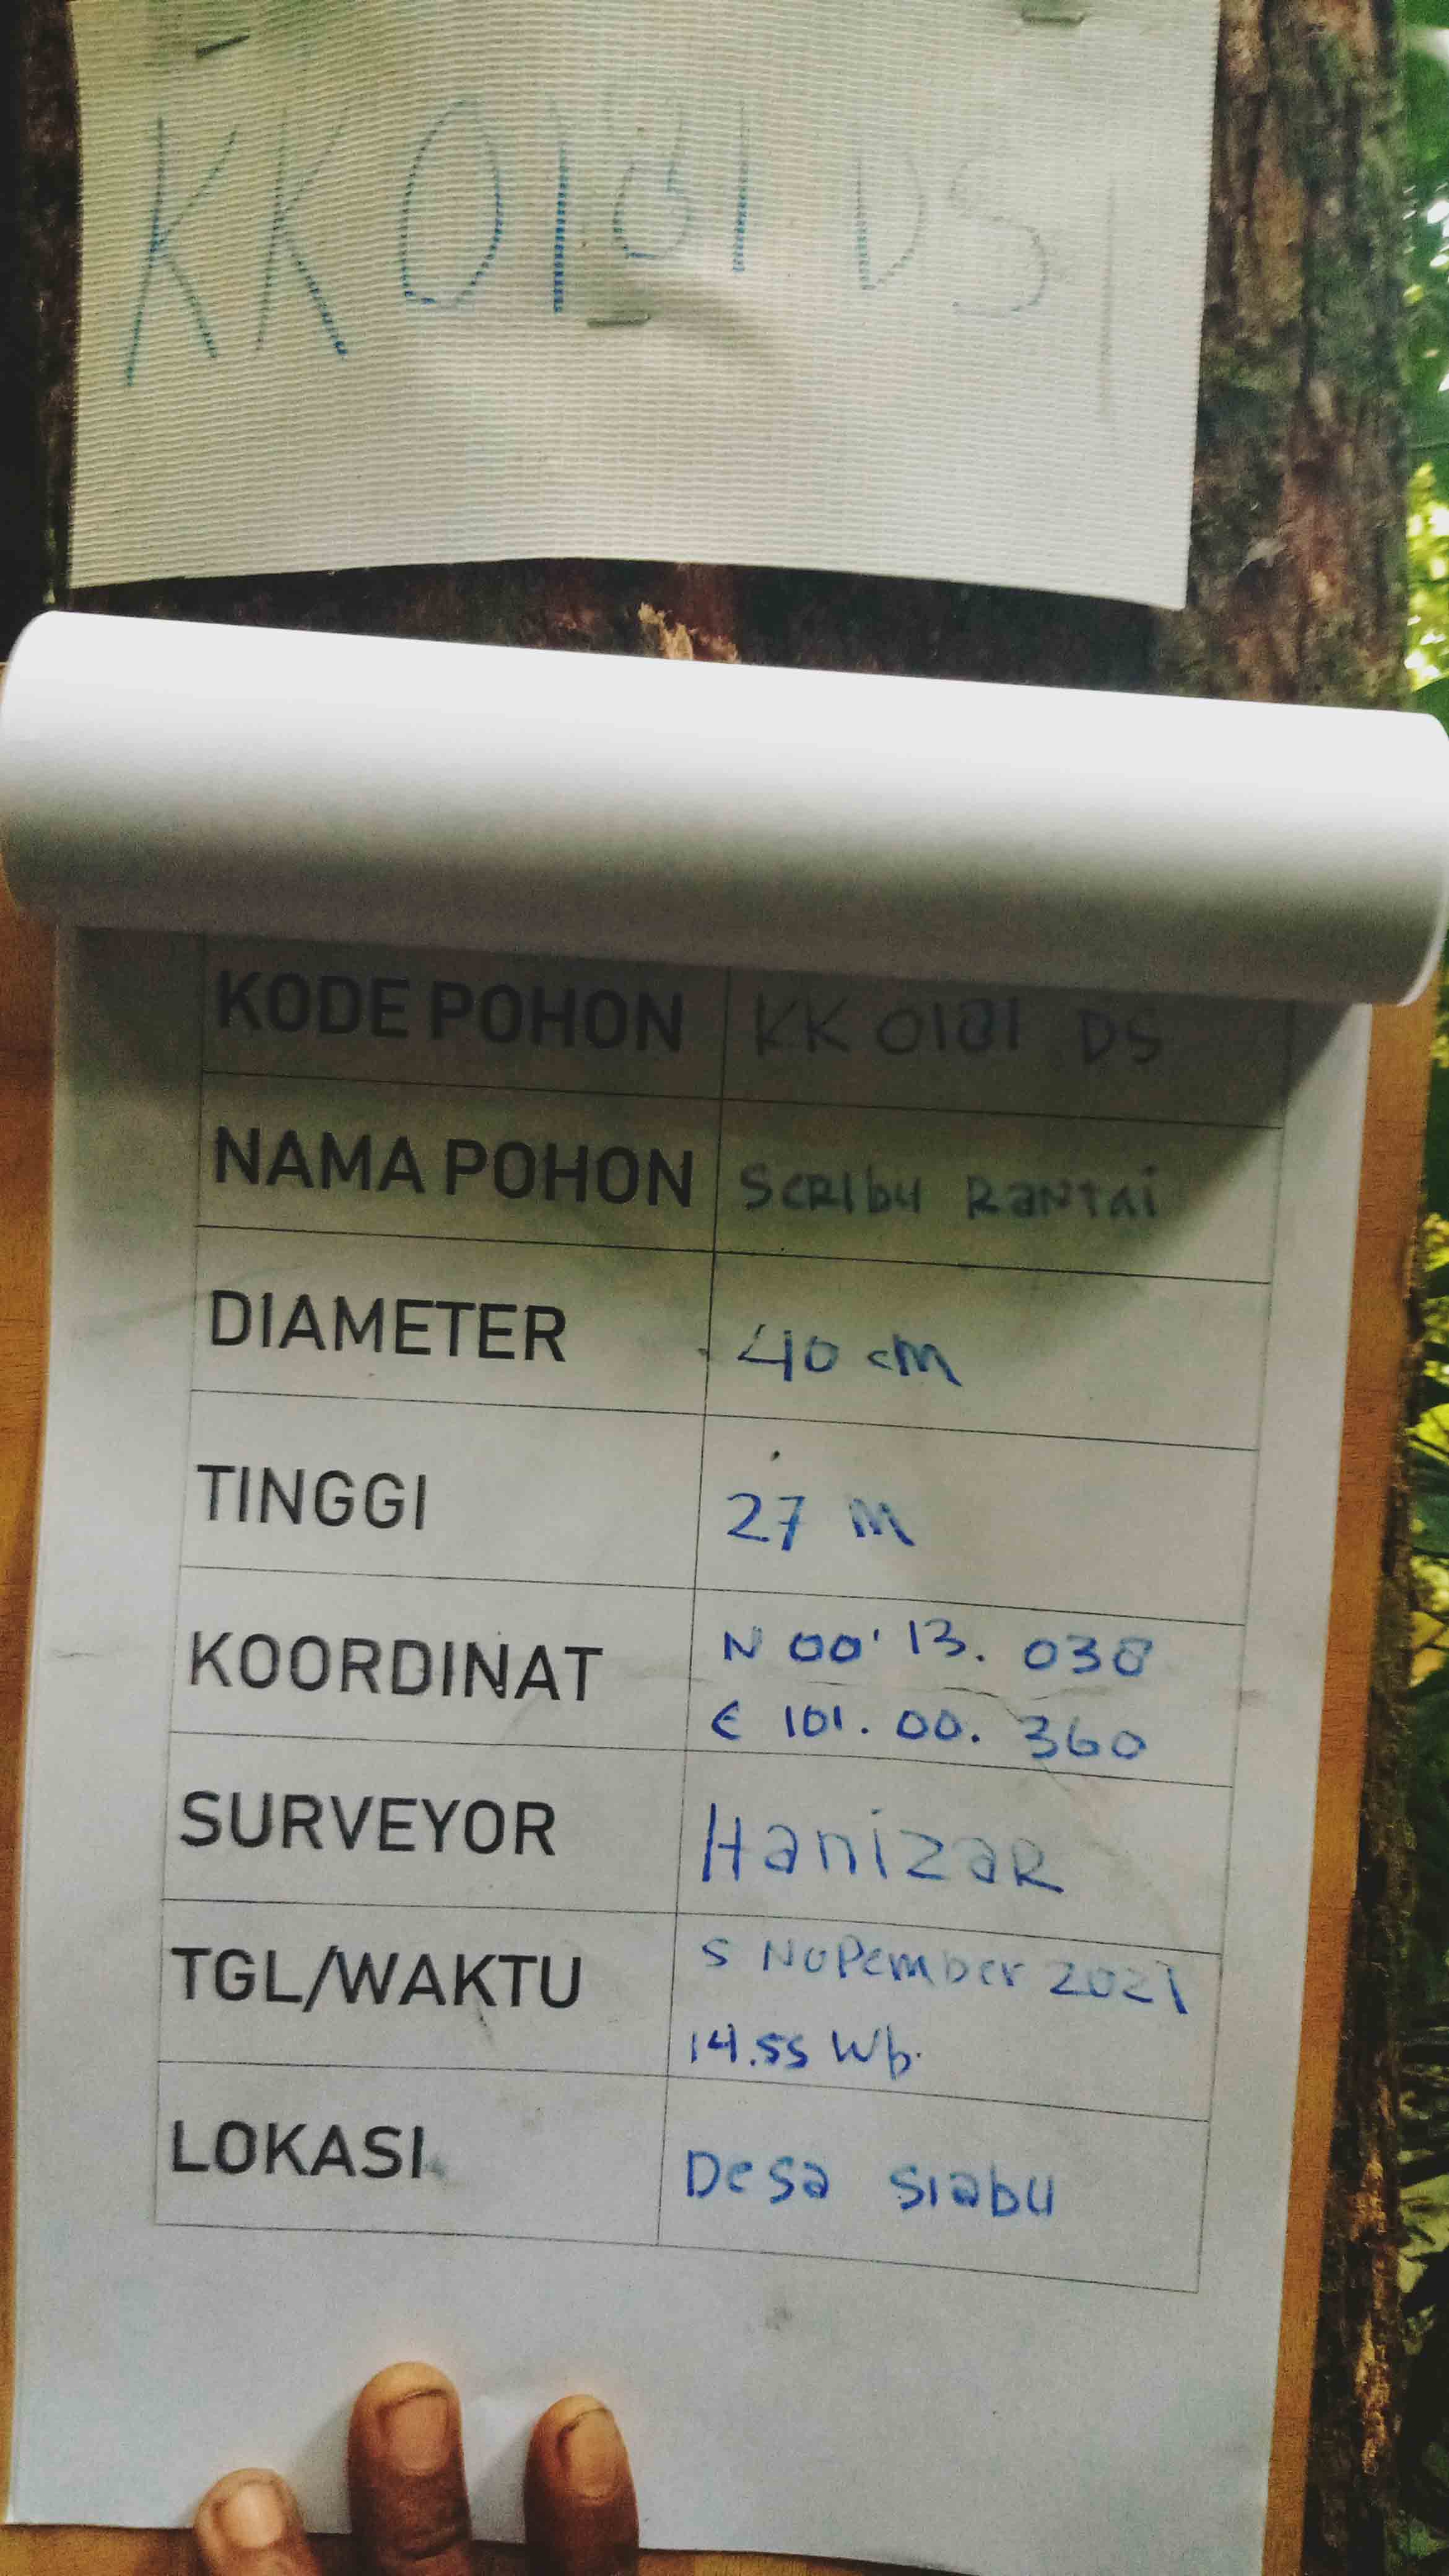 KK0181 DS
KODE POHON KK 0181 DS
NAMA POHON SeRIbu RaNTai
DIAMETER 40 cM
TINGGI 27 M
KOORDINAT N 00' 13. 038
E 101. 00. 360
SURVEYOR HanizaR
TGL/WAKTU 5 NoPember 2021
14.55 Wb.
LOKASI Desa siabu